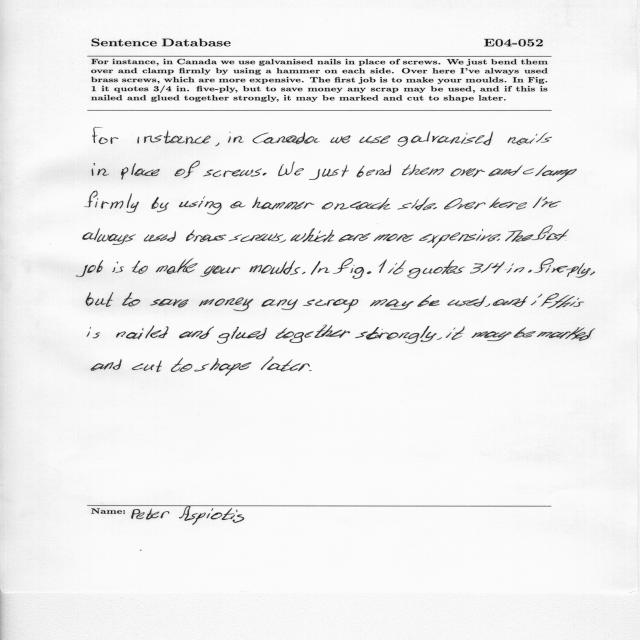 Sentence Database E04-052
For instance, in Canada we use galvanised nails in place of screws. We just bend them
over and clamp firmly by using a hammer on each side. Over here I've always used
brass screws, which are more expensive. The first job is to make your moulds. In Fig.
1 it quotes 3/4 in. five-ply, but to save money any scrap may be used, and if this is
nailed and glued together strongly, it may be marked and cut to shape later.
For instance, in Canada we use galvanised nails
in place of screws. We just bend them over and clamp
firmly by using a hammer on each side. Over here I've
always used brass screws, which are more expensive. The first
job is to make your moulds. In Fig. 1 it quotes 3/4 in. five-ply,
but to save money any scrap may be used, and if this
is nailed and glued together strongly, it may be marked
and cut to shape later.
Name: Peter Aspiotis